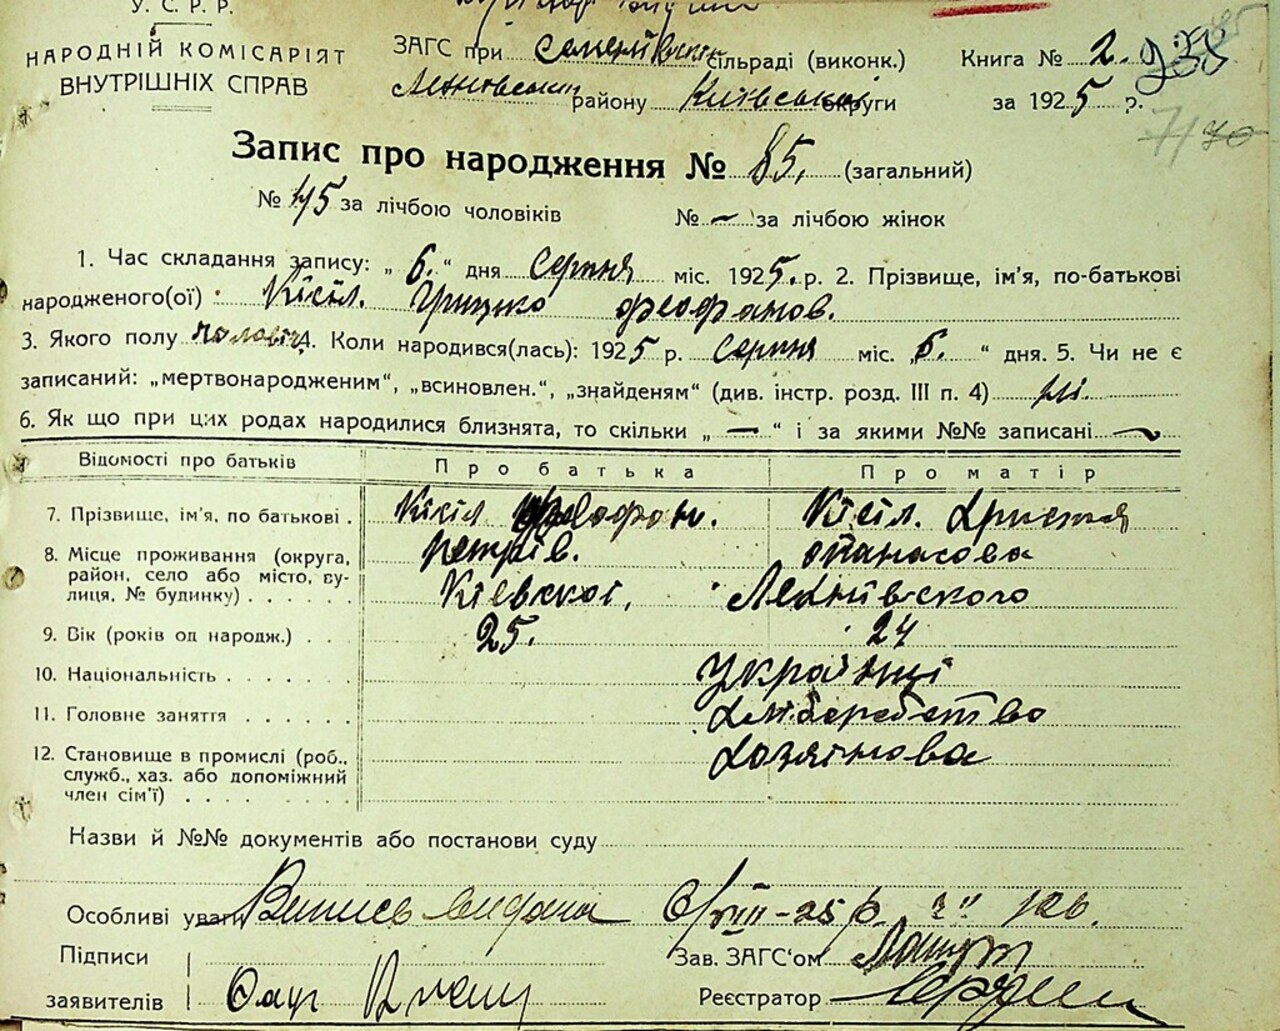 У.С.Р.Р.
НАРОДНІЙ КОМІСАРІЯТ
ВНУТРІШНІХ СПРАВ
ЗАГС при сільраді (виконк.) Книга № 2.
району Київської округи за 1925 р.
Запис про народження № 85. (загальний)
№ 45 за лічбою чоловіків № – за лічбою жінок
1. Час складання запису: „ 6. “ дня Серпня міс. 1925. р. 2. Прізвище, ім'я, по-батькові
народженого(ої) Кісіл. Грицко Феофанов.
3. Якого полу 4. Коли народився(лась): 1925 р. Серпня міс. „ 6. “ дня. 5. Чи не є
записаний: „мертвонародженим“, „всиновлен.“, „знайденям“ (див. інстр. розд. III п. 4) ні.
6. Як що при цих родах народилися близнята, то скільки „ — “ і за якими №№ записані —
Відомості про батьків Про батька Про матір
7. Прізвище, ім'я, по батькові . Кісіл . Кісіл. Христя
8. Місце проживання (округа, Петрів. Опанасова
район, село або місто, ву-
лиця, № будинку) . . . . . . Кіевскоі,
9. Вік (років од народж.) . . 25. 24
10. Національність . . . . . . . Українці
11. Головне заняття . . . . . . Хліборобство
12. Становище в промислі (роб., Хозяінова
служб., хаз. або допоміжний
член сім'ї) . . . . . . . . .
Назви й №№ документів або постанови суду
Особливі уваги Випись видана 6/VIII-25 р.
Підписи Зав. ЗАГС'ом
заявителів Реєстратор